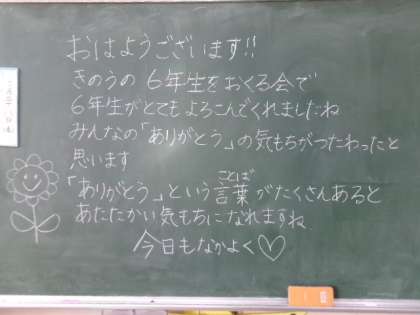 おはようございます!!
きのうの 6年生をおくる会で
6年生がとてもよろこんでくれましたね
みんなの「ありがとう」の気もちがつたわったと
思います
「ありがとう」という言葉がたくさんあると
ことば
あたたかい気もちになれますね
今日もなかよく♡